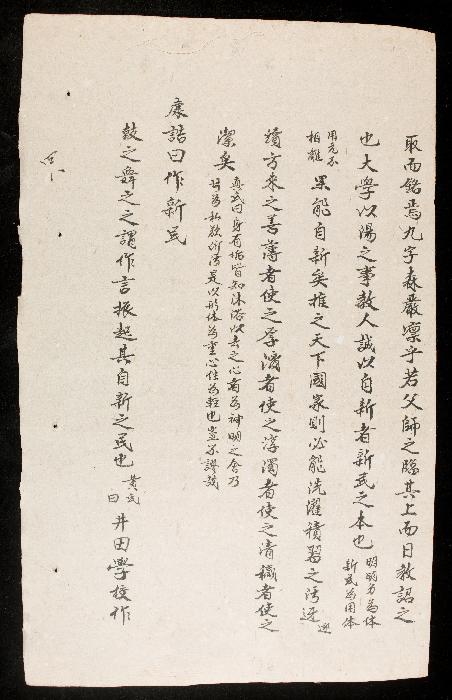 取而銘焉九字森嚴凜乎若父師之臨其上而日教詔之
也大學以湯之事教人誠以自新者新民之本也明明方為体新民為用体
用元不相離果能自新矣推之天下國家則必能洗濯積習之污逆
續方來之善薄者使之厚澆者使之淳濁者使之清穢者使之
潔矣真氏曰身有垢皆知沐浴以去之心者為神明之舍乃
甘為私欲所污是以形体為重心性為輕也豈不謬哉
康誥曰作新民
鼓之舞之之謂作言振起其自新之民也黃氏曰井田學校作